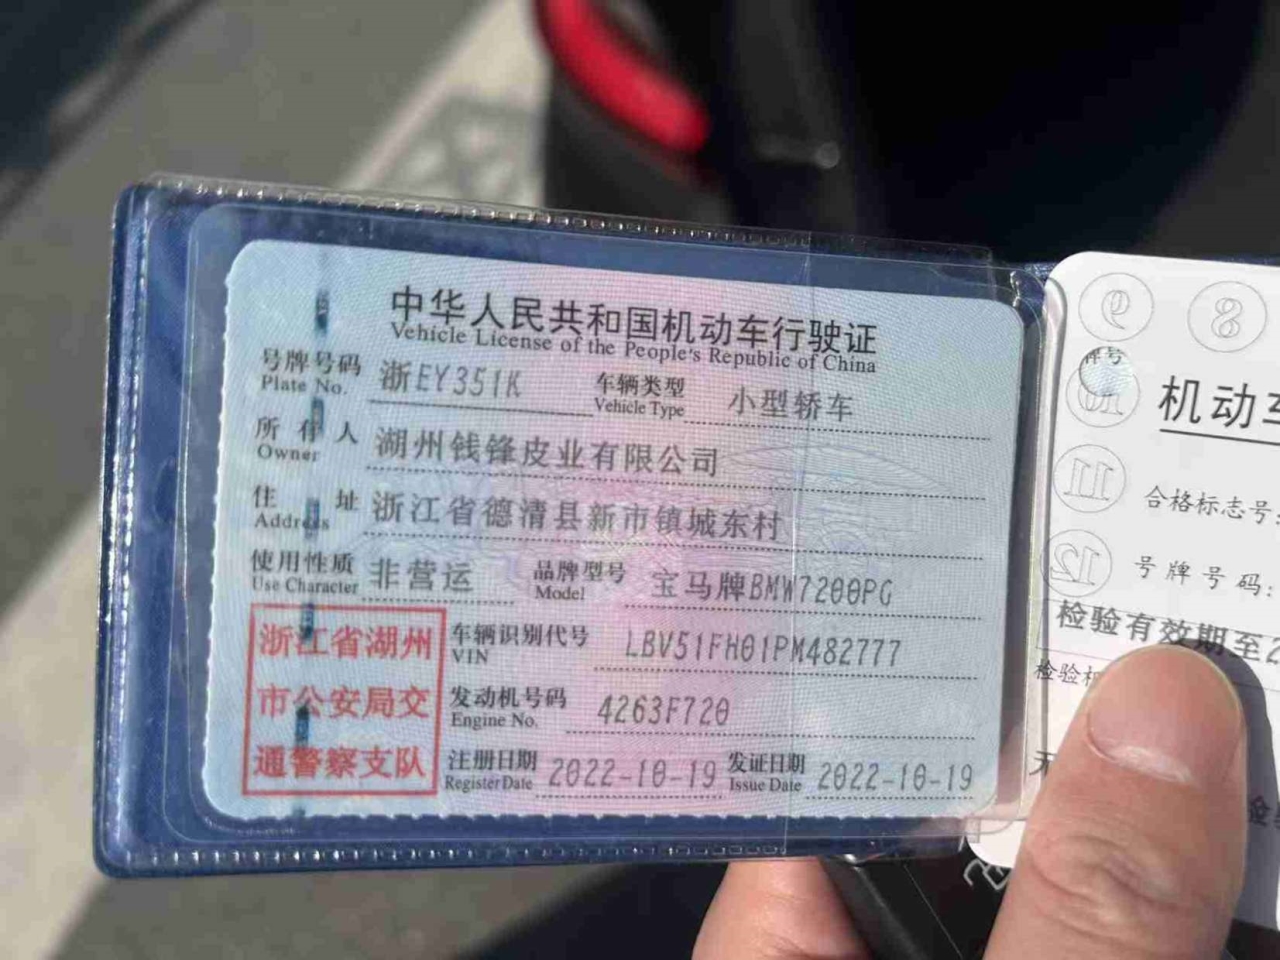 中华人民共和国机动车行驶证
Vehicle License of the People's Republic of China
号牌号码 浙EY351K 车辆类型 小型轿车
Plate No. Vehicle Type
所有人 湖州钱锋皮业有限公司
Owner
住址 浙江省德清县新市镇城东村
Address
使用性质 非营运 品牌型号 宝马牌BMW7200PG
Use Character Model
浙江省湖州
市公安局交
通警察支队
车辆识别代号 LBV51FH01PM482777
VIN
发动机号码 4263F720
Engine No.
注册日期 2022-10-19 发证日期 2022-10-19
Register Date Issue Date
9 8
10
11
12
机动车
合格标志号:
号牌号码:
检验有效期至2